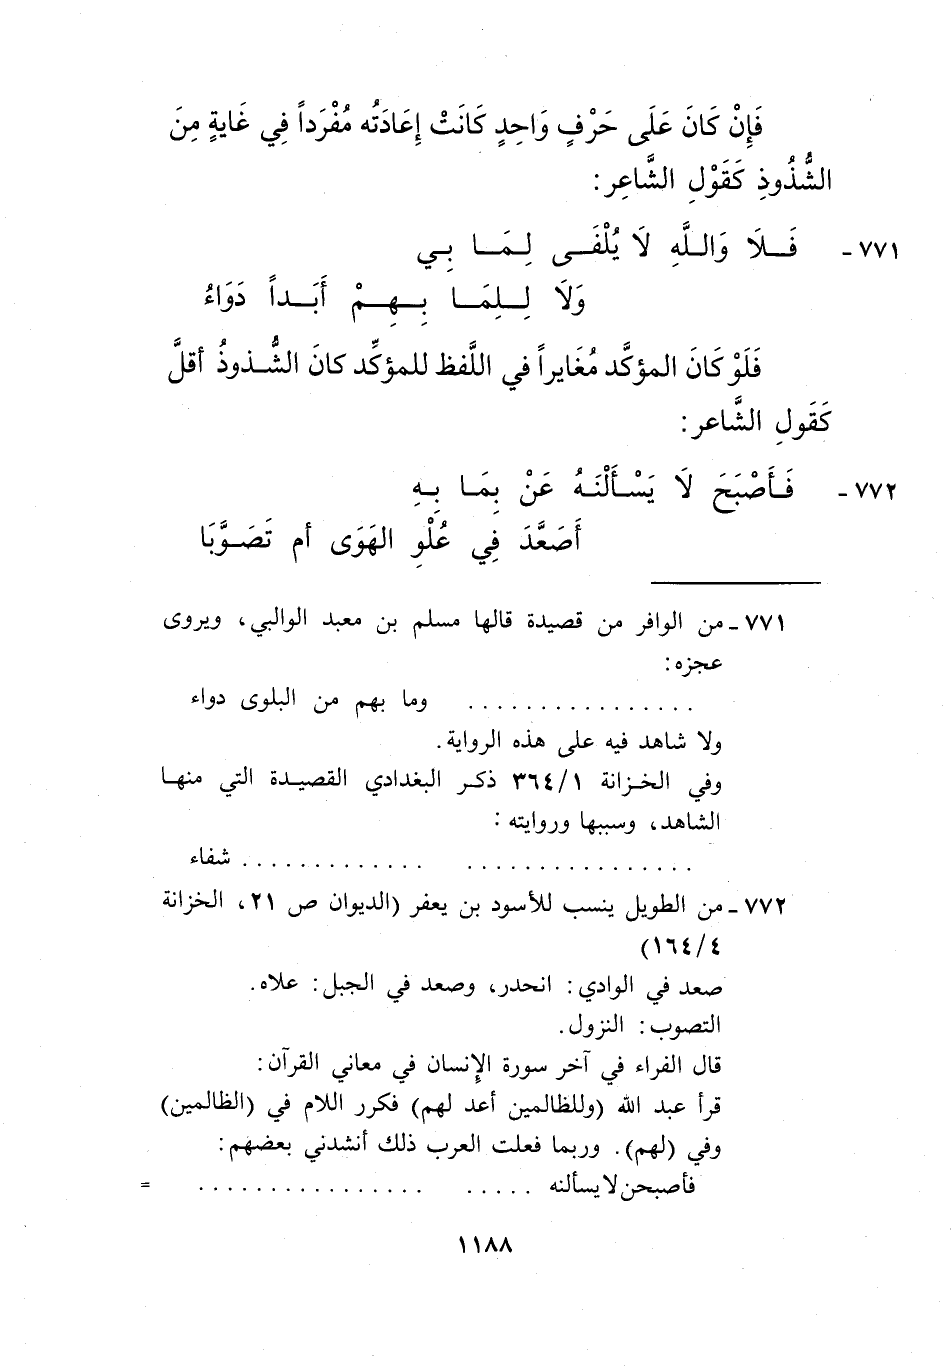 فَإِنْ كَانَ عَلَى حَرْفٍ وَاحِدٍ كَانَتْ إِعَادَتُه مُفْرَداً فِي غَايةٍ مِنَ
الشُّذُوذِ كَقَوْلِ الشَّاعِرِ:
٧٧١- فَلَا وَاللَّهِ لَا يُلْفَى لِمَا بِي
وَلَا لِلِمَا بِهِمْ أَبَداً دَوَاءُ
فَلَوْ كَانَ المؤكَّد مُغَايراً في اللَّفظ للمؤكِّد كانَ الشُّذوذُ أقلَّ
كَقَولِ الشَّاعر:
٧٧٢- فَأَصْبَحَ لَا يَسْأَلْنَهُ عَنْ بِمَا بِهِ
أَصَعَّدَ فِي عُلْوِ الهَوَى أم تَصَوَّبَا
٧٧١- من الوافر من قصيدة قالها مسلم بن معبد الوالبي، ويروى
عجزه:
. . . . . . . . . . . . . . . . وما بهم من البلوى دواء
ولا شاهد فيه على هذه الرواية.
وفي الخزانة ٣٦٤/١ ذكر البغدادي القصيدة التي منها
الشاهد، وسببها وروايته:
. . . . . . . . . . . . . . . . . . . . . . . . . . . . . شفاء
٧٧٢- من الطويل ينسب للأسود بن يعفر (الديوان ص ٢١، الخزانة
١٦٤/٤)
صعد في الوادي: انحدر، وصعد في الجبل: علاه.
التصوب: النزول.
قال الفراء في آخر سورة الإنسان في معاني القرآن:
قرأ عبد الله (وللظالمين أعد لهم) فكرر اللام في (الظالمين)
وفي (لهم). وربما فعلت العرب ذلك أنشدني بعضهم:
فأصبحن لا يسألنه . . . . . . . . . . . . . . . . . . . . . =
١١٨٨